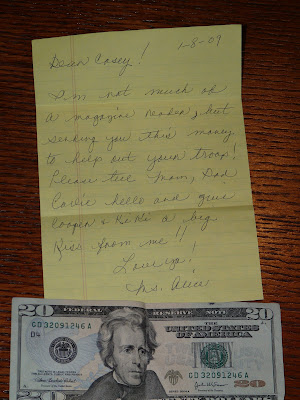 1-8-09
Dear Casey!
I'm not much of
a magazine reader, but
sending you this money
to help out your troop!
Please tell Mom, Dad
Carlie hello and give
Cooper & KiKi a big
Kiss from me!!
Love ya!
Ms. Alice
20 FEDERAL RESERVE NOTE 20
THE UNITED STATES
OF AMERICA
GD 32091246 A
D4
GD 32091246 A
20